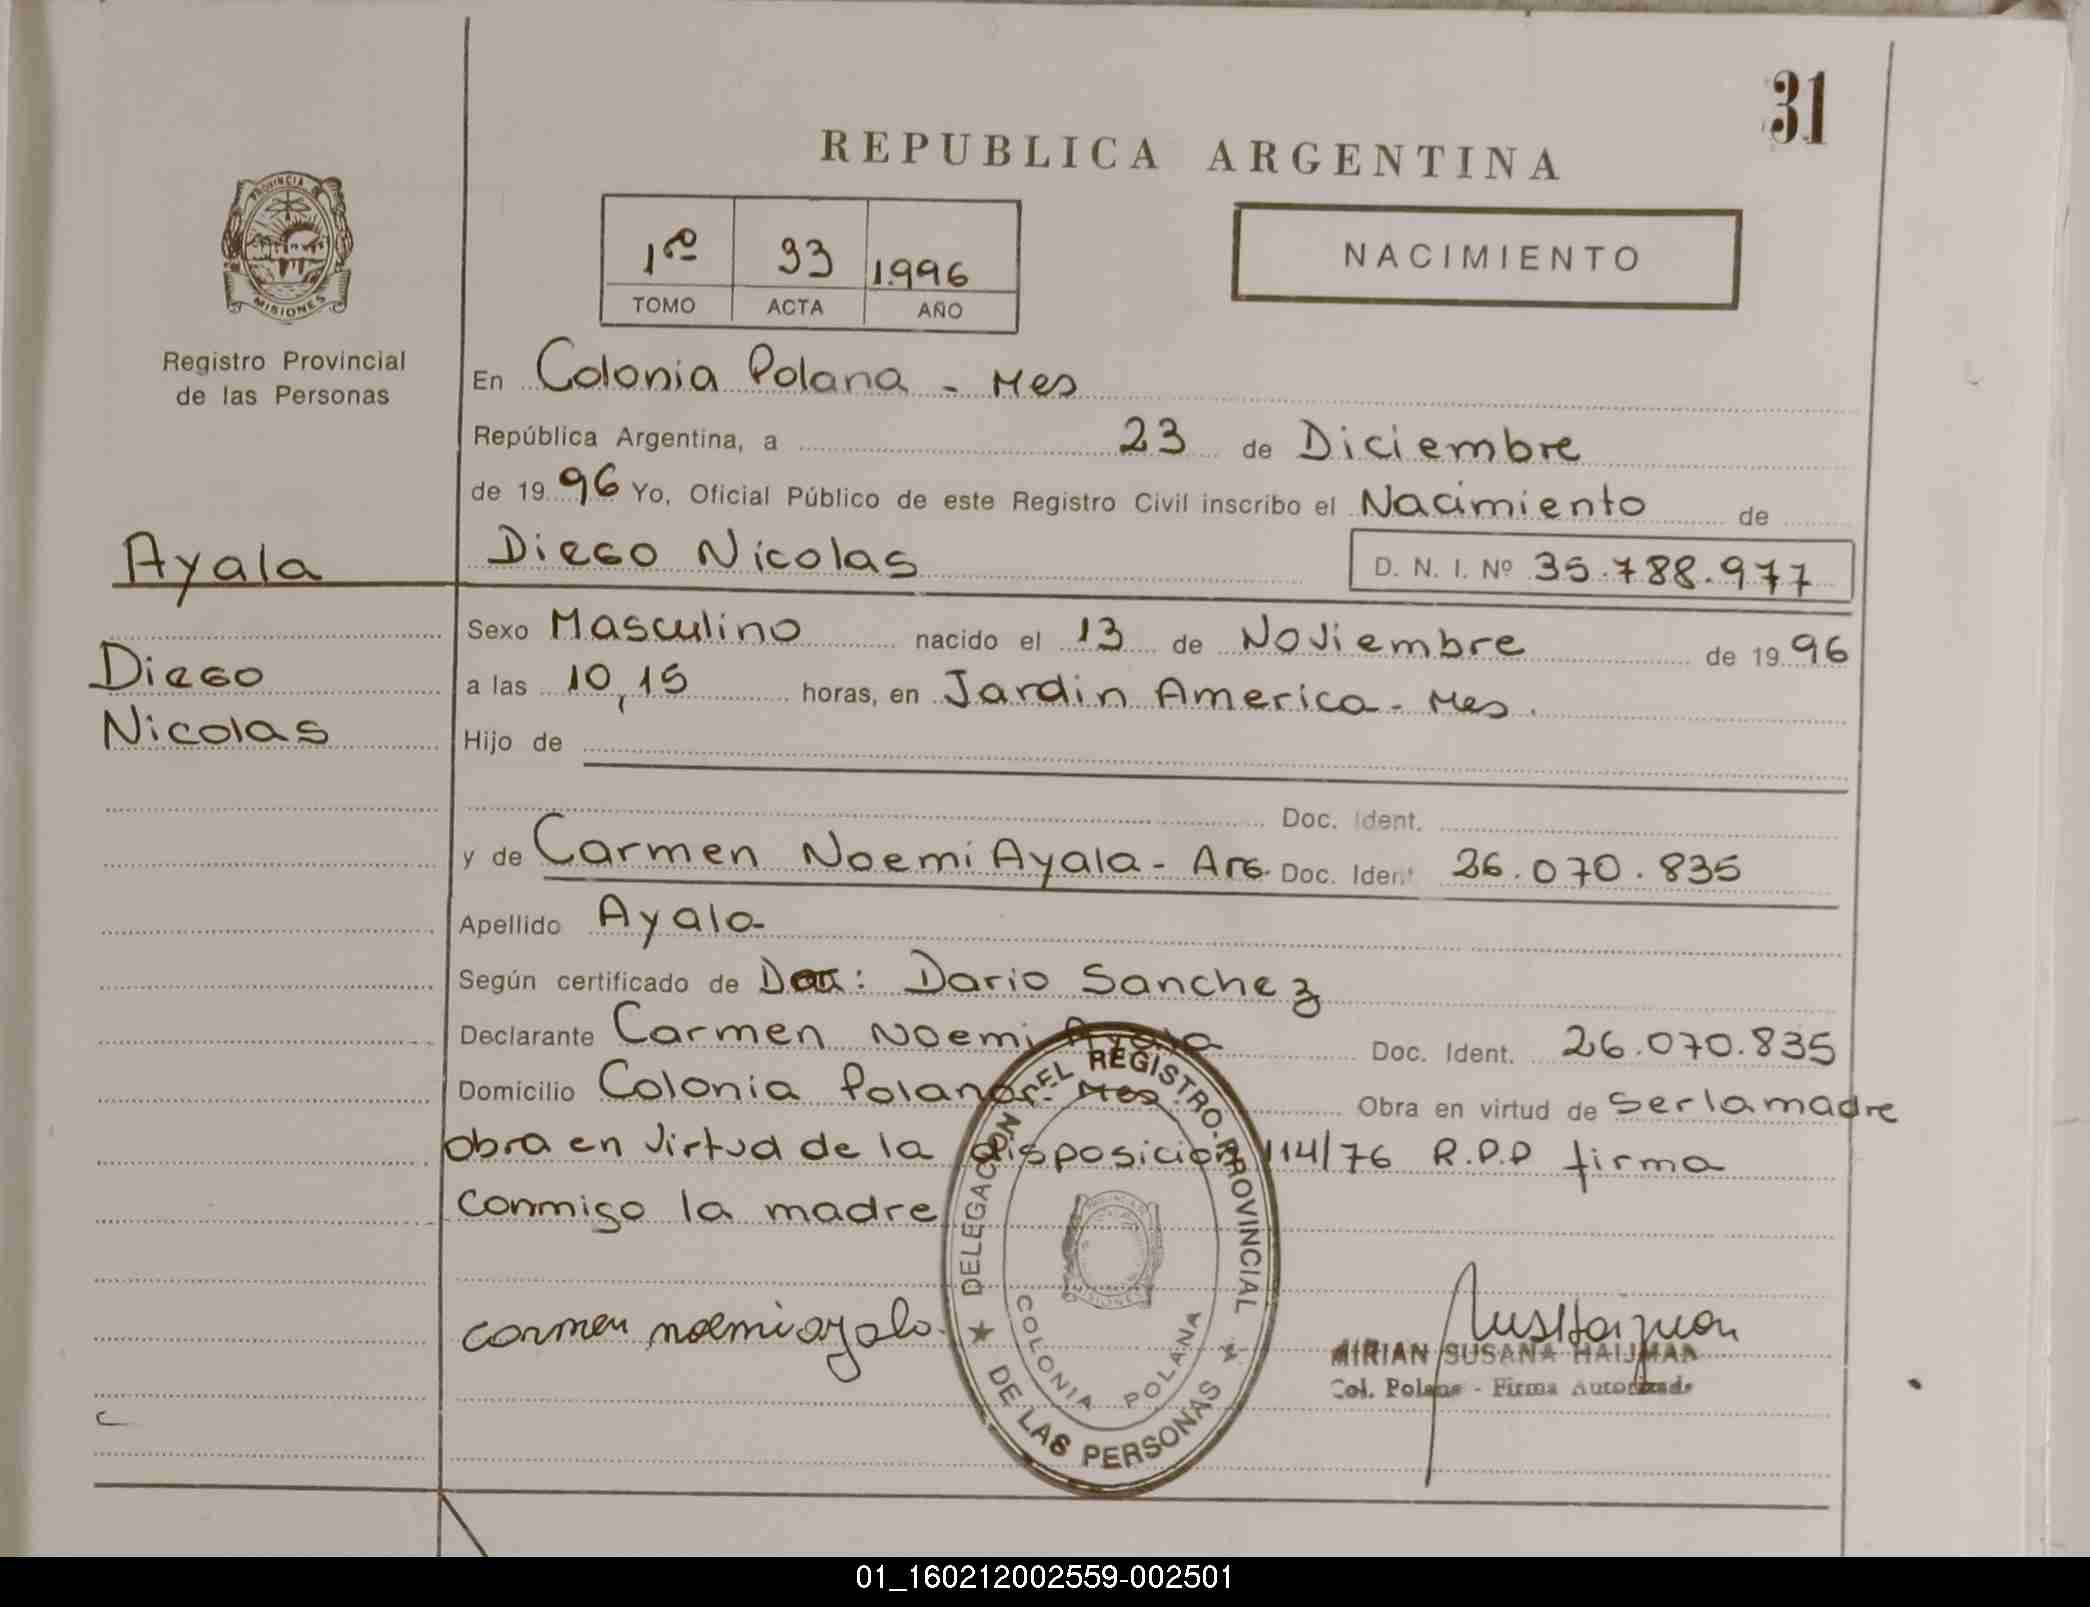 31
REPUBLICA ARGENTINA
PROVINCIA DE
MISIONES
Registro Provincial
de las Personas
1ro 93 1.996
TOMO ACTA AÑO
NACIMIENTO
En Colonia Polana - Mes
República Argentina, a 23 de Diciembre
de 1996 Yo, Oficial Público de este Registro Civil inscribo el Nacimiento de
Ayala Diego Nicolas D. N. I. Nº 35.788.977
Sexo Masculino nacido el 13 de Noviembre de 1996
Diego
a las 10,15 horas, en Jardin America - Mes.
Nicolas
Hijo de
Doc. Ident.
y de Carmen Noemi Ayala - Arg. Doc. Ident 26.070.835
Apellido Ayala
Según certificado de : Dario Sanchez
Declarante Carmen Noemi Ayala Doc. Ident. 26.070.835
Domicilio Colonia Polana - Mes Obra en virtud de ser la madre
obra en virtud de la disposicion 114/76 R.P.P firma
conmigo la madre
carmen noemi ayala.
DELEGACION DEL REGISTRO PROVINCIAL
DE LAS PERSONAS
COLONIA POLANA
MISIONES
MIRIAN SUSANA HAIJMAN
Col. Polana - Firma Autorizada
01_160212002559-002501